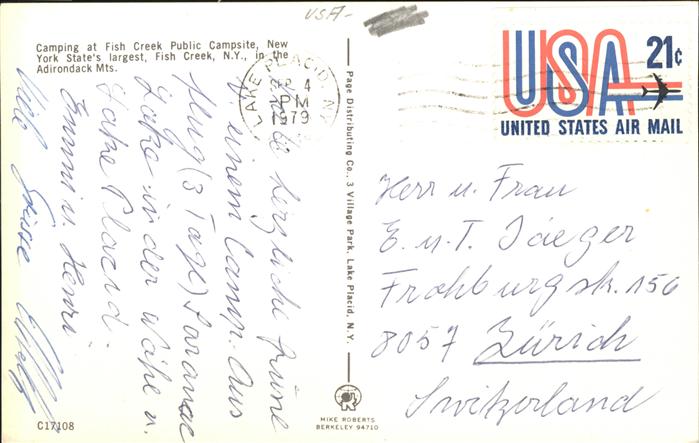 USA-
Camping at Fish Creek Public Campsite, New
York State's largest, Fish Creek, N.Y., in the
Adirondack Mts.
LAKE PLACID, NY
4
PM
1979
USA 21¢
UNITED STATES AIR MAIL
herzliche Grüsse
einem Camp. Aus
flug (3 Tage) Saranac
Lake in der Nähe v.
Lake Placid.
Emmi u. Henri
Viele Grüsse
Page Distributing Co., 3 Village Park, Lake Placid, N.Y.
Herr u. Frau
E. u. T. Jaeger
Frohburgstr. 156
8057 Zürich
Switzerland
C17108
MIKE ROBERTS
BERKELEY 94710